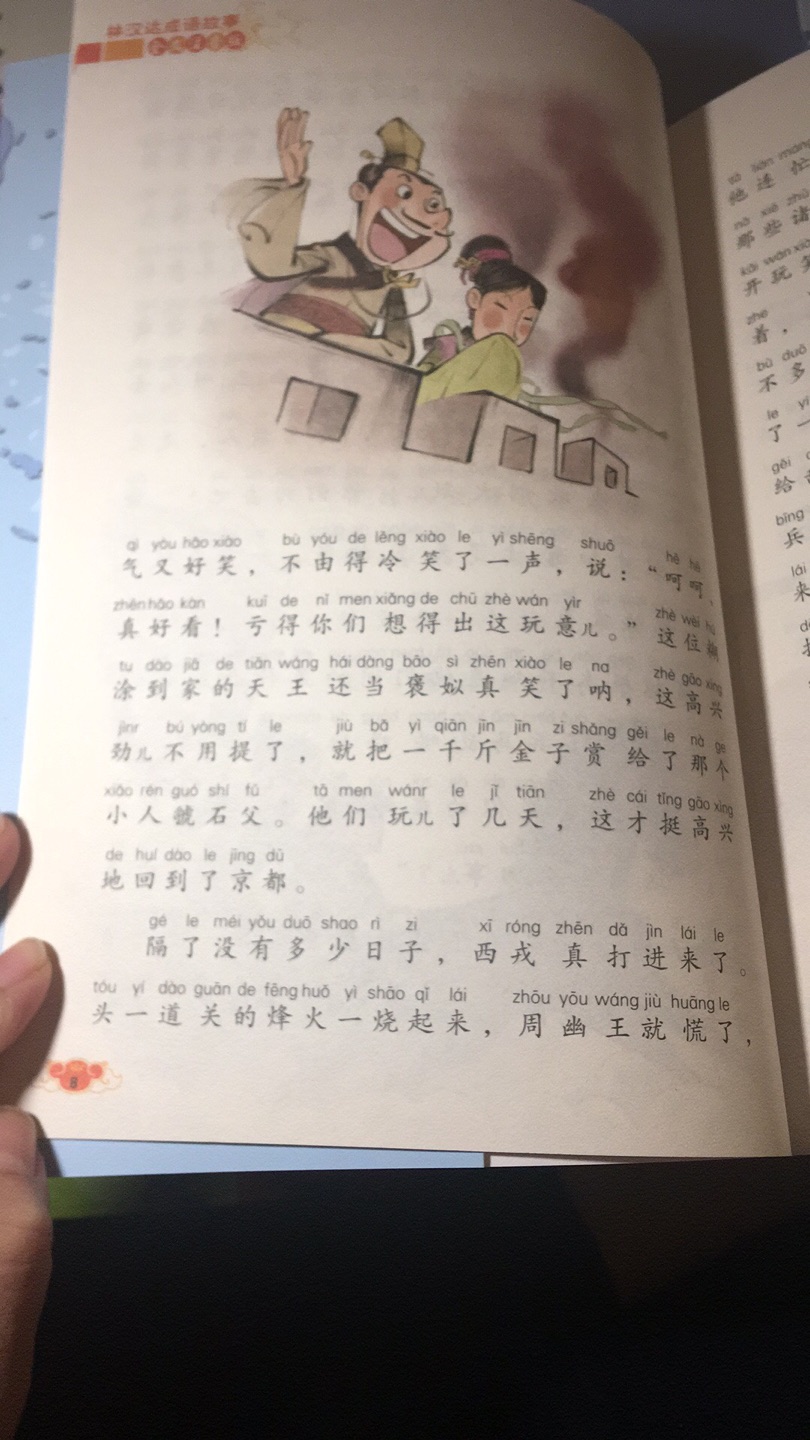 林汉达成语故事
qì yòu hǎo xiào bù yóu de lěng xiào le yì shēng shuō hē hē
气又好笑，不由得冷笑了一声，说：“呵呵，
zhēn hǎo kàn kuī de nǐ men xiǎng de chū zhè wán yìr zhè wèi hú
真好看！亏得你们想得出这玩意儿。”这位糊
tu dào jiā de tiān wáng hái dàng bāo sì zhēn xiào le na zhè gāo xìng
涂到家的天王还当褒姒真笑了呐，这高兴
jìnr bú yòng tí le jiù bǎ yì qiān jīn jīn zi shǎng gěi le nà ge
劲儿不用提了，就把一千斤金子赏给了那个
xiǎo rén guó shí fǔ tā men wánr le jǐ tiān zhè cái tǐng gāo xìng
小人虢石父。他们玩儿了几天，这才挺高兴
de huí dào le jīng dū
地回到了京都。
gé le méi yǒu duō shao rì zi xī róng zhēn dǎ jìn lái le
隔了没有多少日子，西戎真打进来了。
tóu yí dào guān de fēng huǒ yì shāo qǐ lái zhōu yōu wáng jiù huāng le
头一道关的烽火一烧起来，周幽王就慌了，
8
tā lián máng
他连忙
nà xiē zhū
那些诸
kāi wán xiào
开玩笑
zhe
着，
bù duō
不多
le yì
了一
gěi
给
bīng
兵
lái
来